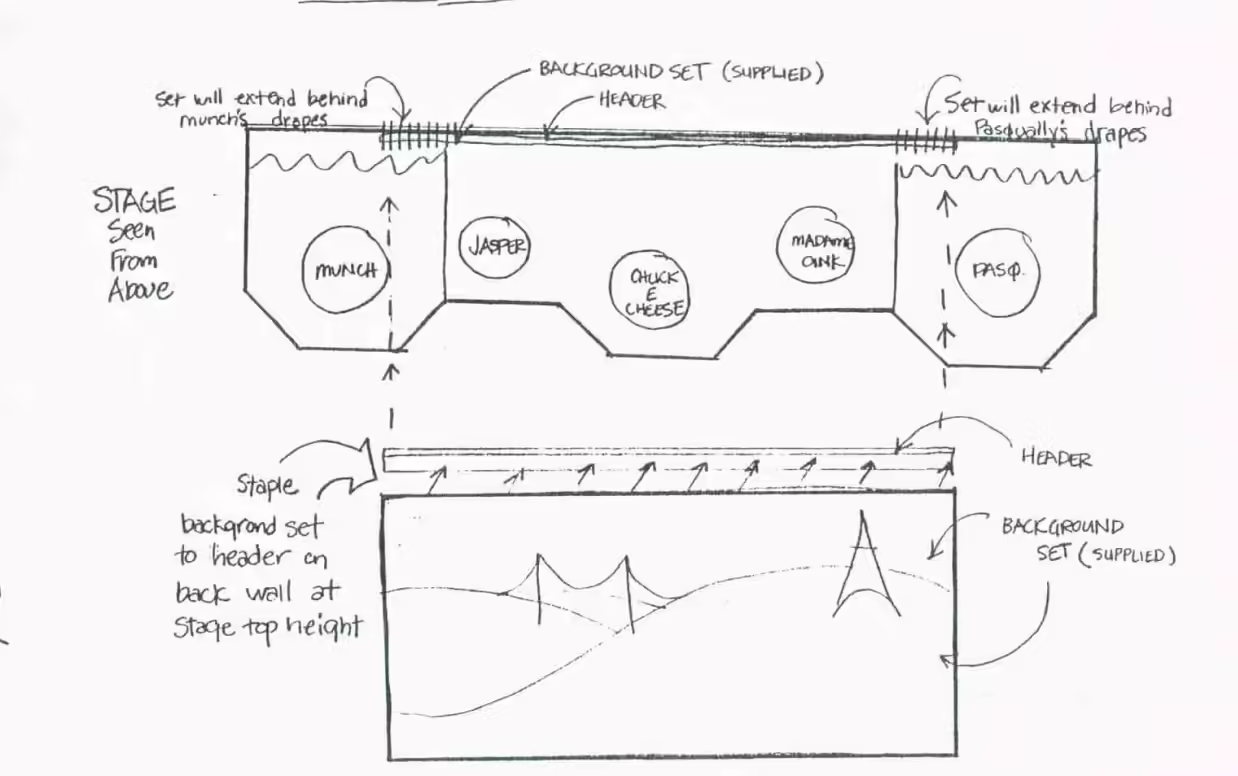 BACKGROUND SET (SUPPLIED)
HEADER
Set will extend behind
munch's drapes
Set will extend behind
Pasqually's drapes
STAGE
Seen
From
Above
MUNCH
JASPER
CHUCK
E
CHEESE
MADAME
OINK
PASQ.
HEADER
Staple
backgrond set
to header on
back wall at
Stage top height
BACKGROUND
SET (SUPPLIED)